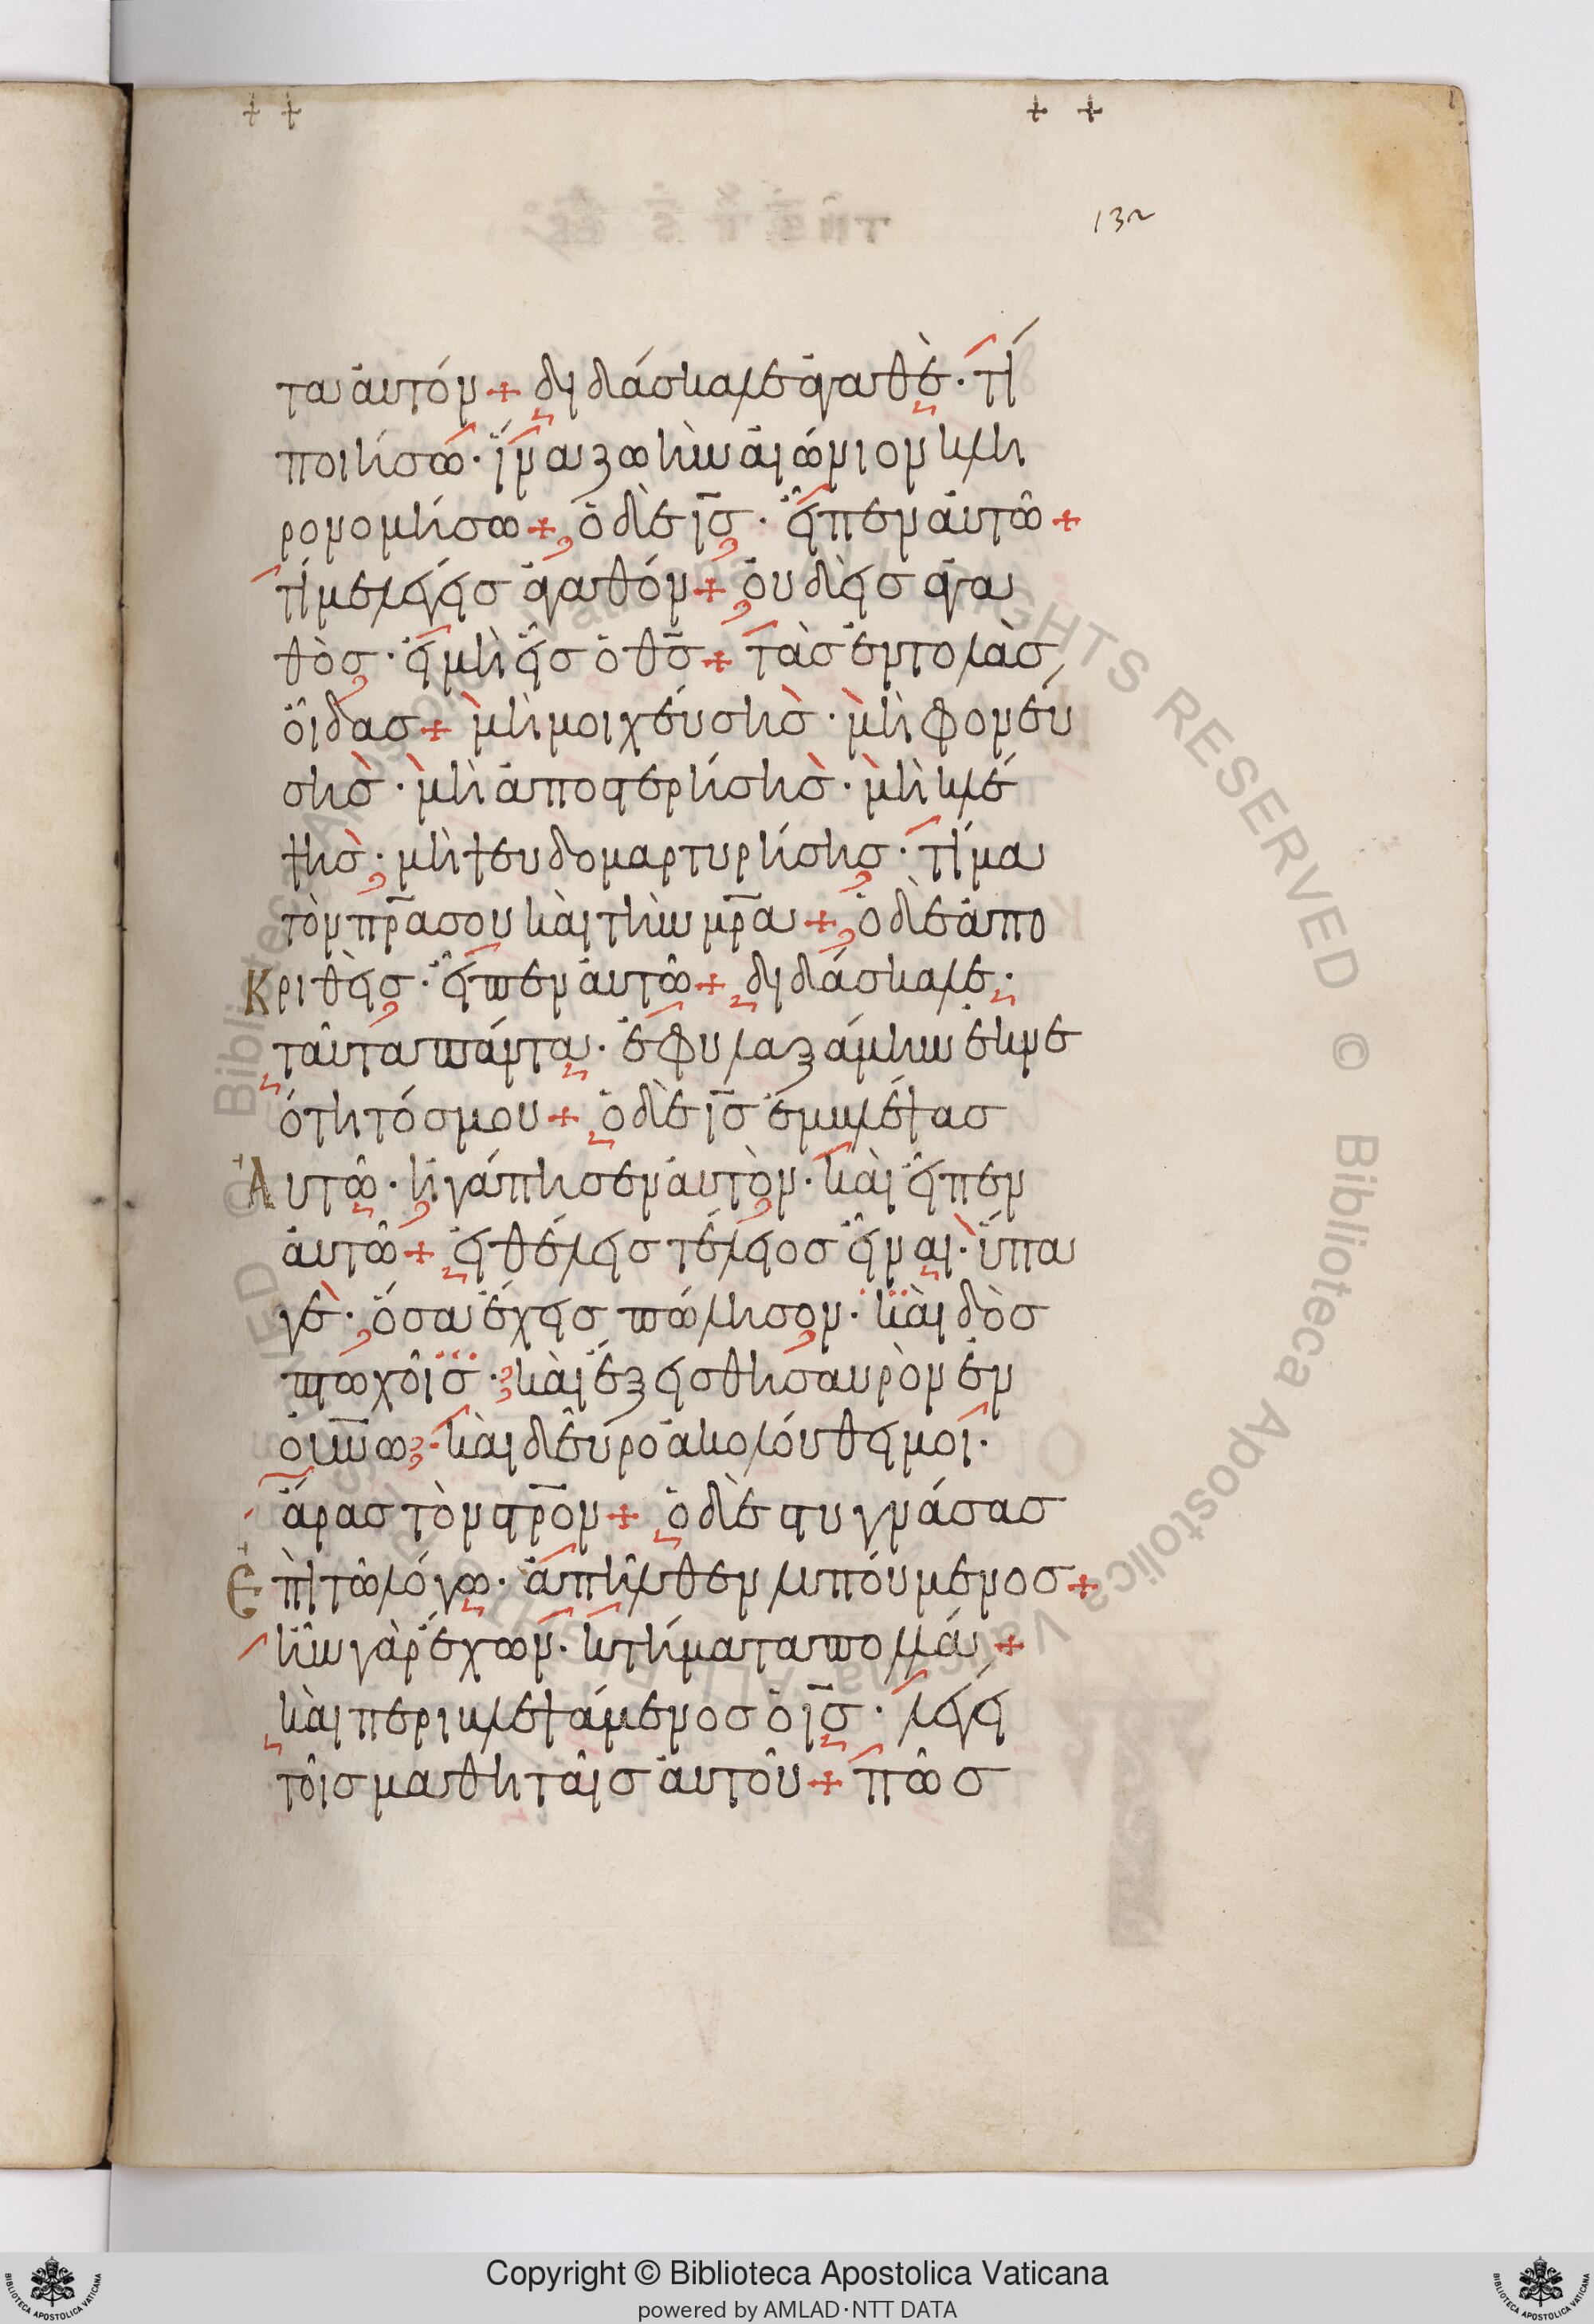 132
τα ἀυτόν + διδάσκαλε ἀγαθὲ · τί
ποιήσω · ἵνα ζωὴν αἰώνιον κλη
ρονομήσω + ὁ δὲ ι̅ς̅ · εἶπεν ἀυτῶ +
τί με λέγεις ἀγαθόν + ὀυδεὶς ἀγα
θὸς · εἰ μὴ εἷς ὁ θ̅ς̅ + τὰς ἐντολὰς
ὄιδας + μὴ μοιχέυσης · μὴ φονέυ
σης · μὴ ἀποστερήσης · μὴ κλέ
ψης · μὴ ψευδομαρτυρήσης · τίμα
τὸν π̅ρ̅α σου καὶ τὴν μ̅ρ̅α + ὁ δὲ ἀπο
Κριθεὶς · εἶπεν ἀυτῶ + διδάσκαλε ·
ταῦτα πάντα · ἐφυλαξάμην ἐκ νε
ότητός μου + ὁ δὲ ι̅ς̅ ἐμβλέψας
Ἀυτῶ · ἠγάπησεν ἀυτὸν · καὶ εἶπεν
ἀυτῶ + εἰ θέλεις τέλειος εἶναι · ὕπα
γε · ὅσα ἔχεις πώλησον · καὶ δὸς
πτωχοῖς · καὶ ἕξεις θησαυρὸν ἐν
ὀυ̅ν̅ω · καὶ δεῦρο ἀκολόυθει μοι ·
ἄρας τὸν στ̅ρ̅ον + ὁ δὲ στυγνάσας
Ἐπὶ τῶ λόγω · ἀπῆλθεν λυπόυμενος +
ἦν γὰρ ἔχων · κτήματα πολλά +
καὶ περιβλεψάμενος ὁ ι̅ς̅ · λέγει
τοῖς μαθηταῖς ἀυτοῦ + πῶς
Copyright © Biblioteca Apostolica Vaticana
powered by AMLAD·NTT DATA